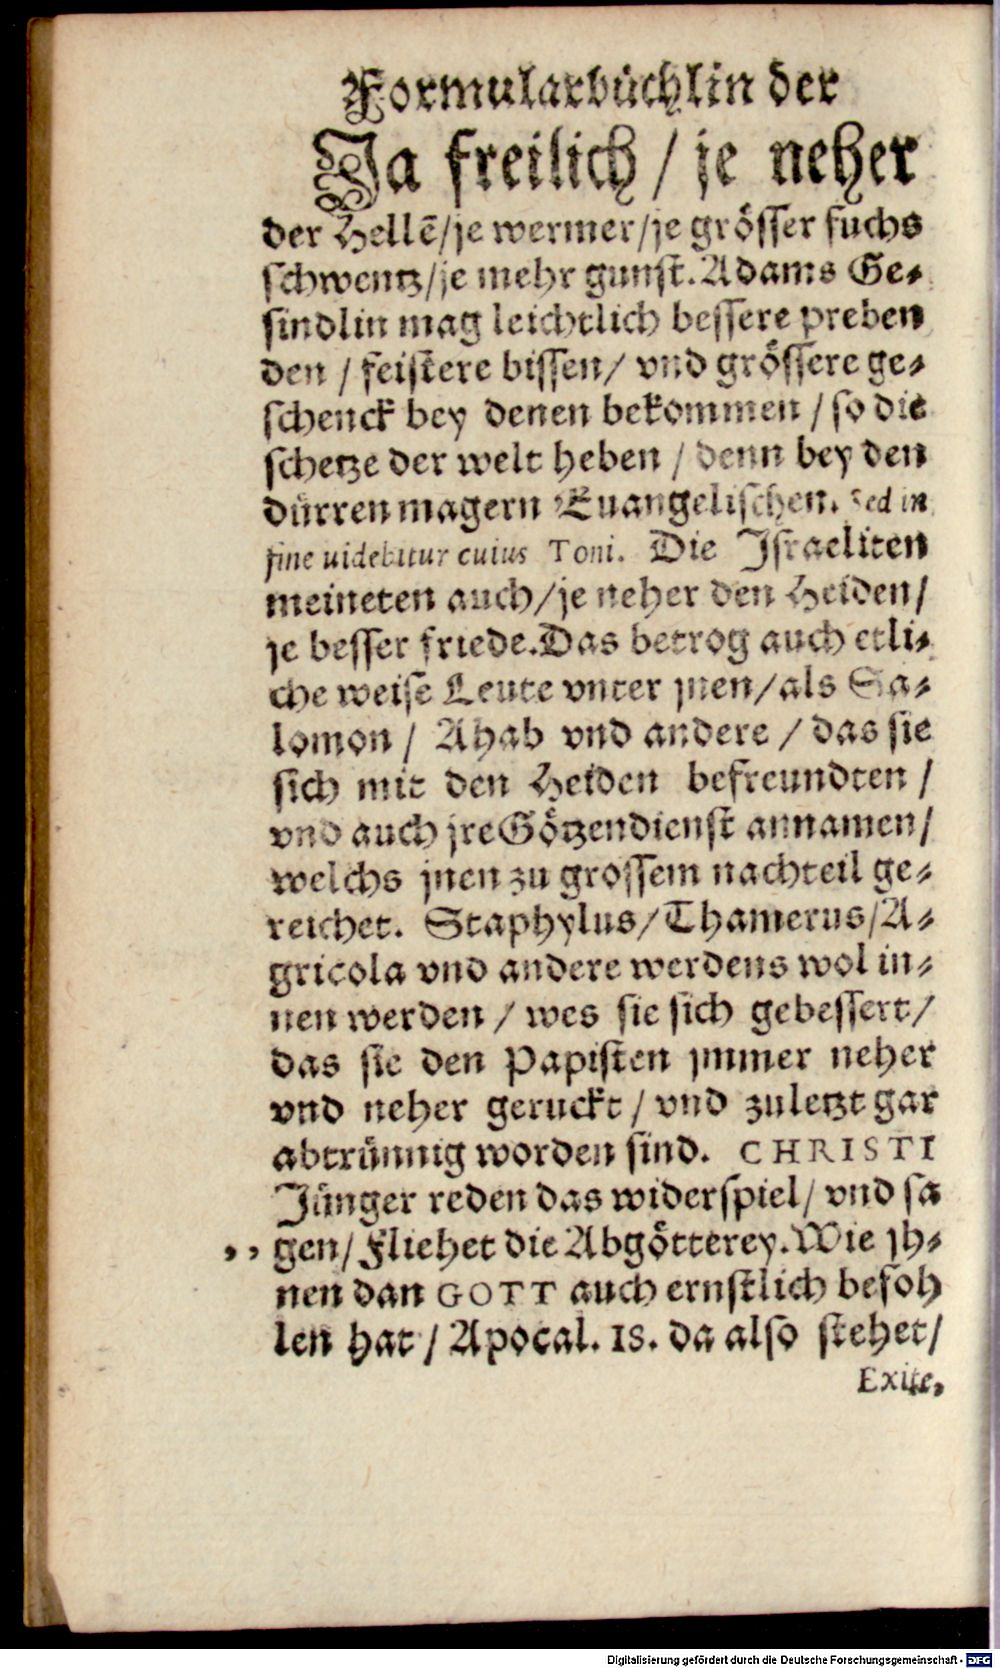 Formularbüchlin der
Ja freilich / je neher
der Hellē/je wermer/je grösser fuchs
schwentz/je mehr gunst. Adams Ge⸗
sindlin mag leichtlich bessere preben
den / feistere bissen/ vnd grössere ge⸗
schenck bey denen bekommen / so die
schetze der welt heben / denn bey den
dürren magern Euangelischen. Sed in
fine uidebitur cuius Toni. Die Israeliten
meineten auch/je neher den Heiden/
je besser friede. Das betrog auch etli⸗
che weise Leute vnter jnen/als Sa⸗
lomon / Ahab vnd andere / das sie
sich mit den Heiden befreundten /
vnd auch jre Götzendienst annamen/
welchs jnen zu grossem nachteil ge⸗
reichet. Staphylus/Thamerus/A⸗
gricola vnd andere werdens wol in⸗
nen werden / wes sie sich gebessert/
das sie den Papisten jmmer neher
vnd neher geruckt / vnd zuletzt gar
abtrünnig worden sind. CHRISTI
Jünger reden das widerspiel/ vnd sa
,, gen/Fliehet die Abgötterey. Wie jh⸗
nen dan GOTT auch ernstlich befoh
len hat / Apocal. 18. da also stehet/
Exite,
Digitalisierung gefördert durch die Deutsche Forschungsgemeinschaft - DFG